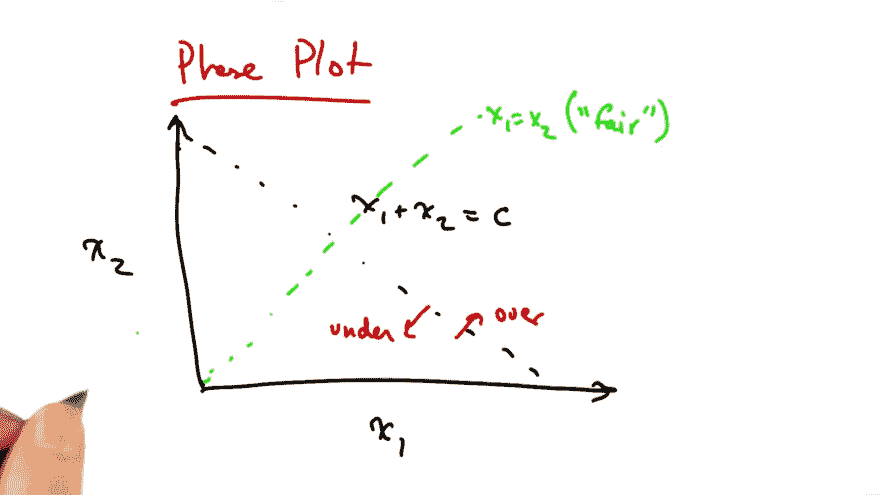 Phase Plot
x₁=x₂ ("fair")
x₁+x₂=C
x₂
under over
x₁